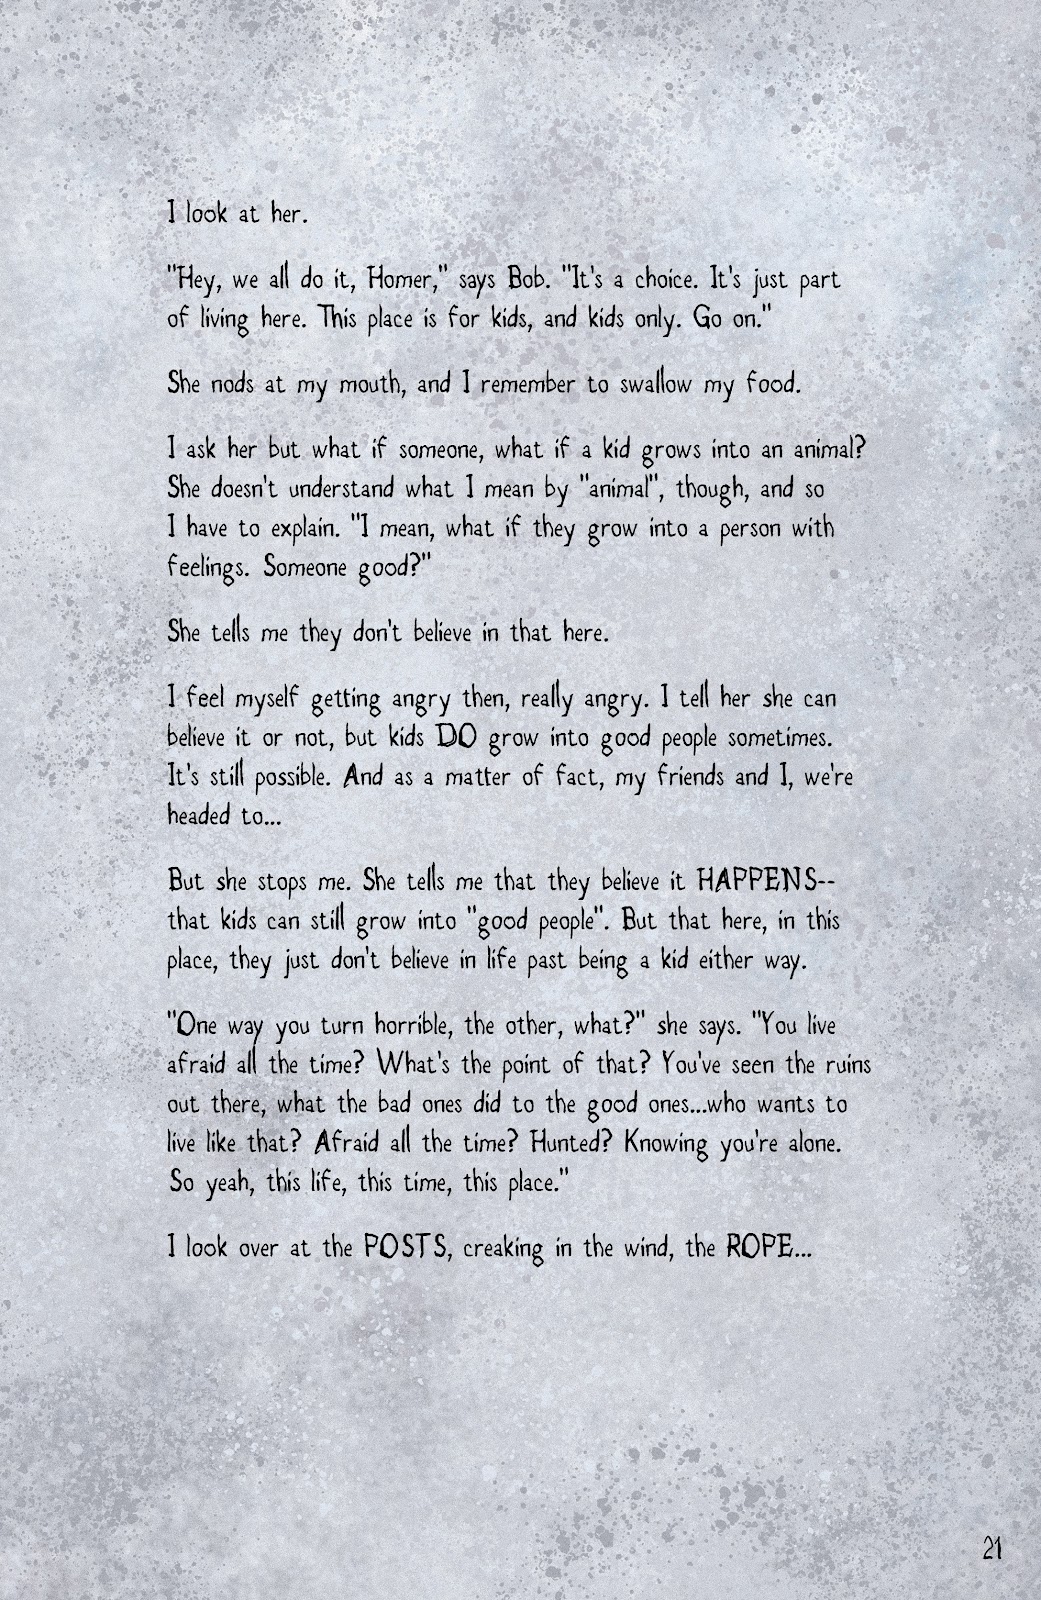 I look at her.
"Hey, we all do it, Homer," says Bob. "It's a choice. It's just part
of living here. This place is for kids, and kids only. Go on."
She nods at my mouth, and I remember to swallow my food.
I ask her but what if someone, what if a kid grows into an animal?
She doesn't understand what I mean by "animal", though, and so
I have to explain. "I mean, what if they grow into a person with
feelings. Someone good?"
She tells me they don't believe in that here.
I feel myself getting angry then, really angry. I tell her she can
believe it or not, but kids DO grow into good people sometimes.
It's still possible. And as a matter of fact, my friends and I, we're
headed to...
But she stops me. She tells me that they believe it HAPPENS--
that kids can still grow into "good people". But that here, in this
place, they just don't believe in life past being a kid either way.
"One way you turn horrible, the other, what?" she says. "You live
afraid all the time? What's the point of that? You've seen the ruins
out there, what the bad ones did to the good ones...who wants to
live like that? Afraid all the time? Hunted? Knowing you're alone.
So yeah, this life, this time, this place."
I look over at the POSTS, creaking in the wind, the ROPE...
21